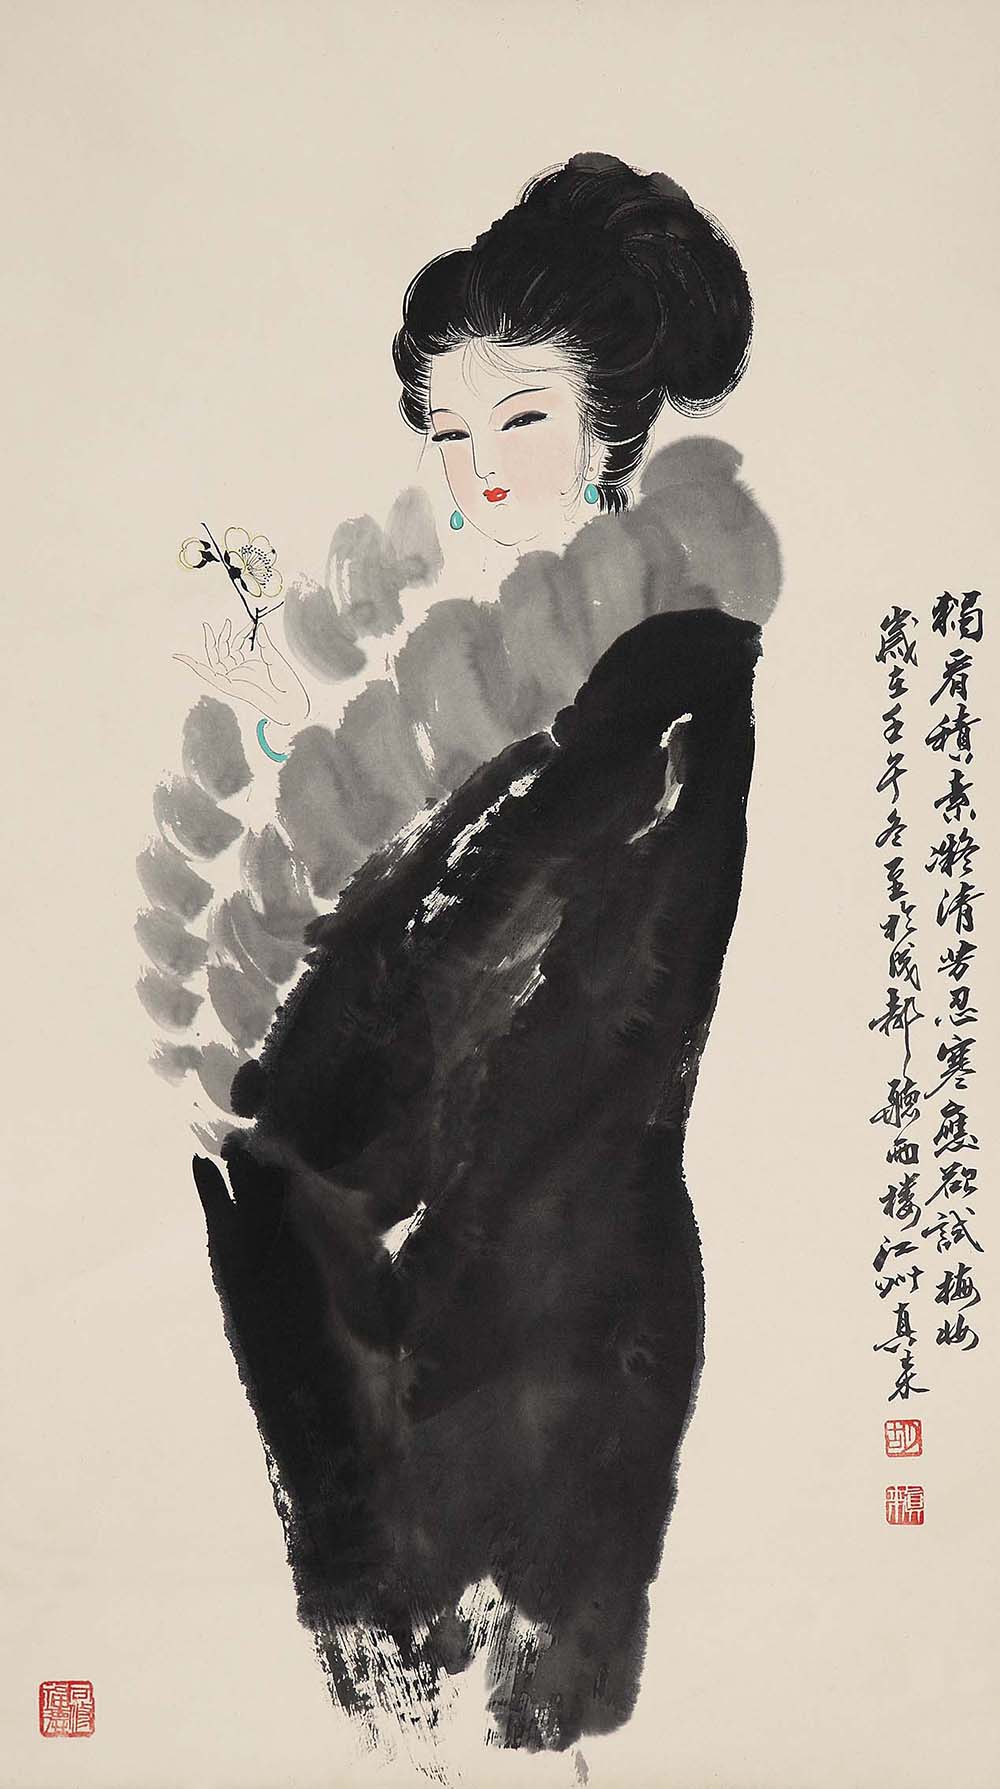 獨看積素凝清芳忍寒應欲試梅妝
歲在壬午冬至於成都聽雨樓江州真來
胡
真來